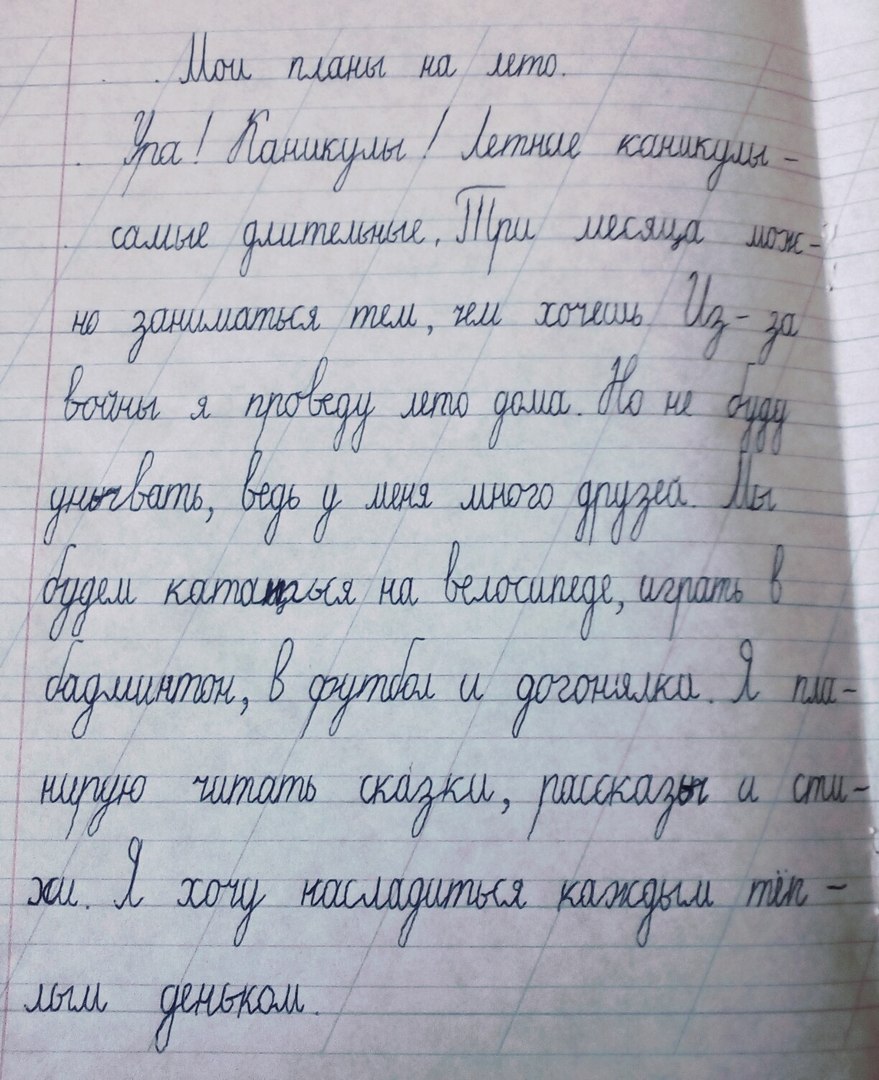 Мои планы на лето.
Ура! Каникулы! Летние каникулы -
самые длительные. Три месяца мож-
но заниматься тем, чем хочешь. Из-за
войны я проведу лето дома. Но не буду
унывать, ведь у меня много друзей. Мы
будем кататься на велосипеде, играть в
бадминтон, в футбол и догонялки. Я пла-
нирую читать сказки, рассказы и сти-
хи. Я хочу насладиться каждым тёп-
лым деньком.